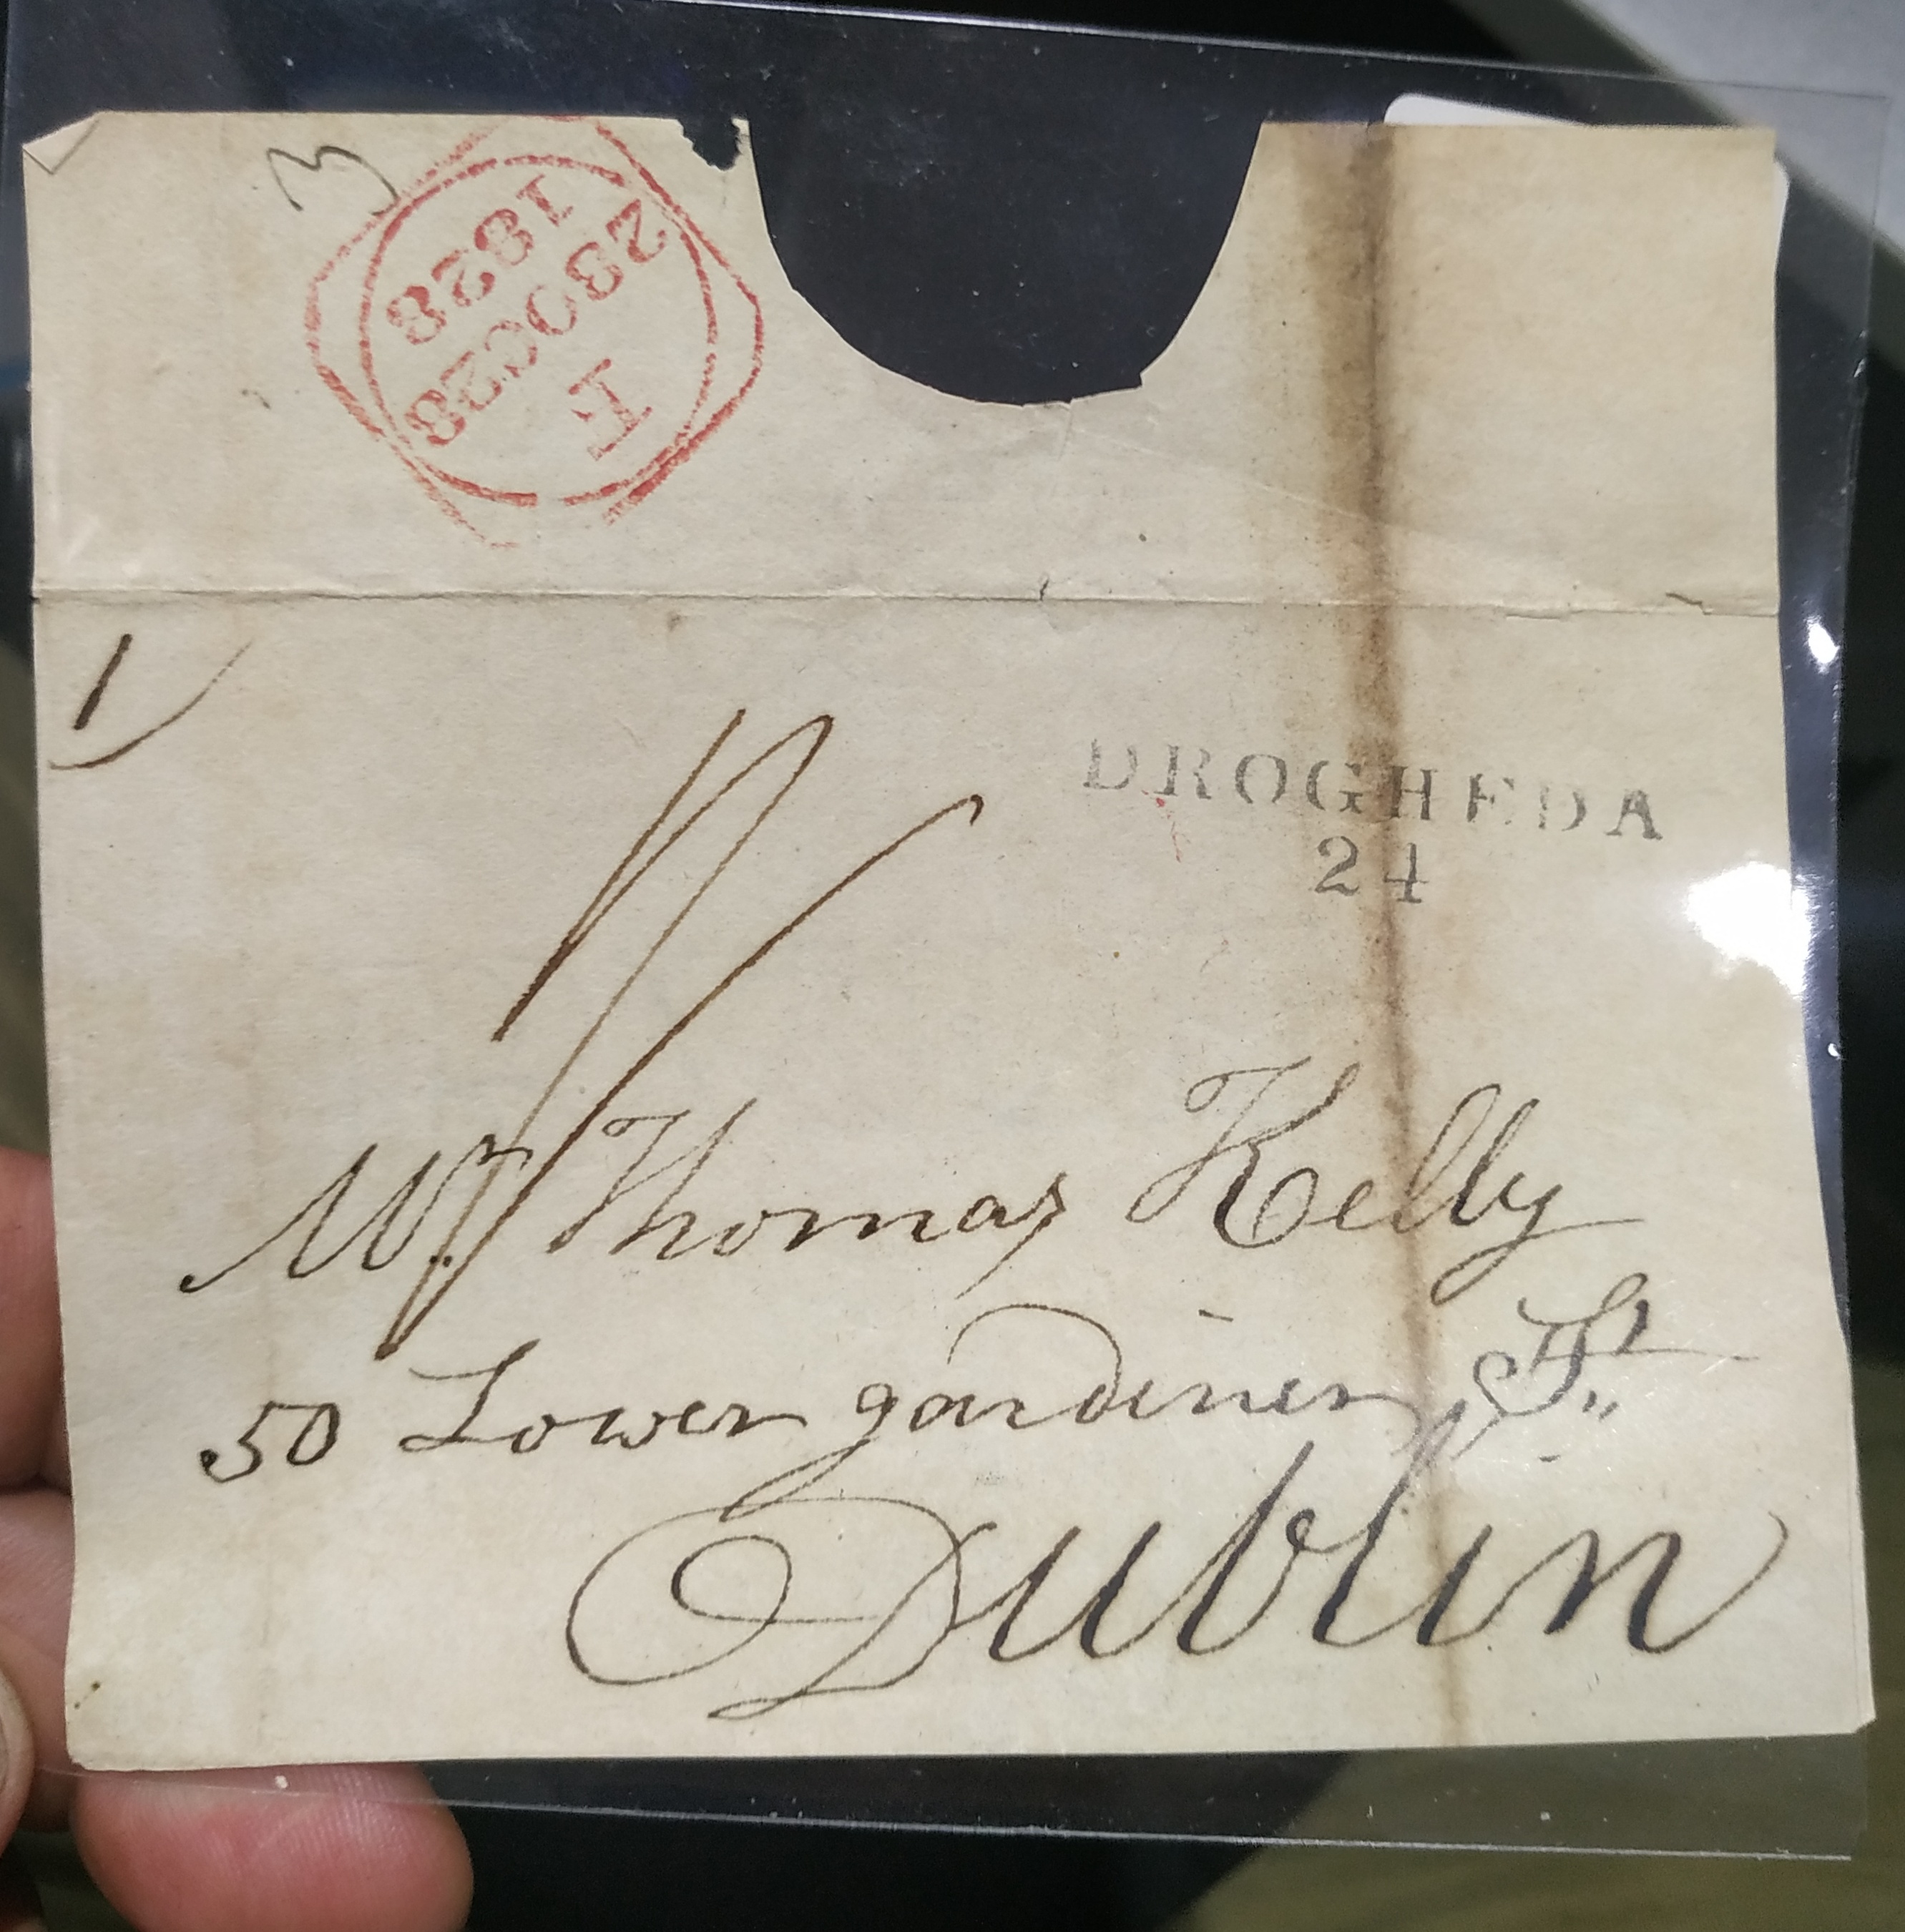 3
F
23OC28
1828
1
DROGHEDA
24
Mr. Thomas Kelly
50 Lower gardiner St
Dublin